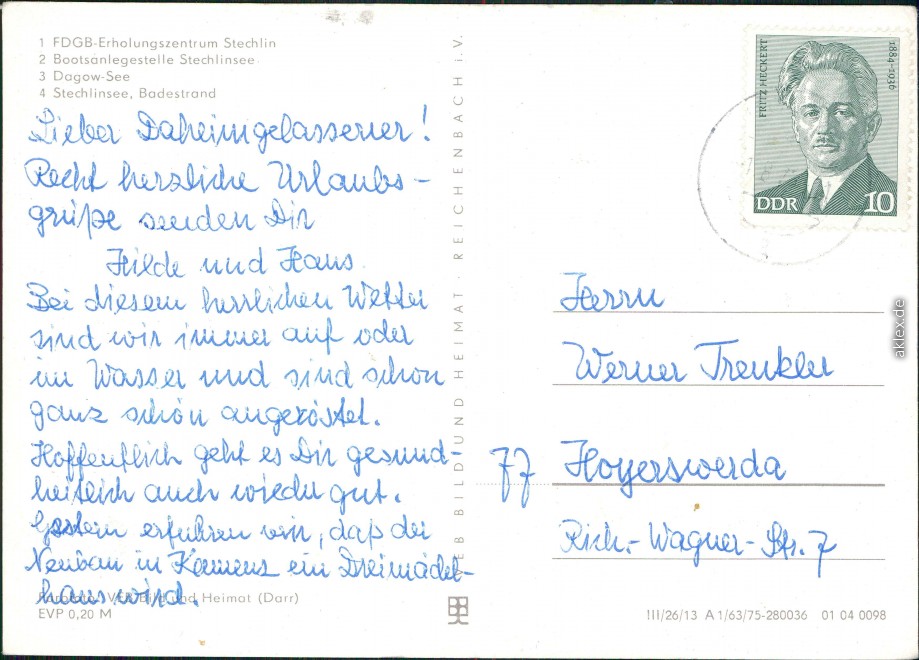 1 FDGB-Erholungszentrum Stechlin
2 Bootsanlegestelle Stechlinsee
3 Dagow-See
4 Stechlinsee, Badestrand
Lieber Daheimgelassener!
Recht herzliche Urlaubs-
grüße senden Dir
Hilde und Hans
Bei diesem herrlichen Wetter
sind wir immer auf oder
im Wasser und sind schon
ganz schön angeröstet.
Hoffentlich geht es Dir gesund-
heitlich auch wieder gut.
Gestern erfuhren wir, daß der
Neubau in Kamenz ein Dreimädel-
haus wird.
VEB Bild und Heimat (Darr)
EVP 0,20 M
VEB BILD UND HEIMAT · REICHENBACH i.V.
FRITZ HECKERT
1884-1936
DDR 10
Herrn
Werner Trenkler
77 Hoyerswerda
Rich.-Wagner-Str. 7
III/26/13 A 1/63/75-280036 01 04 0098
aklex.de